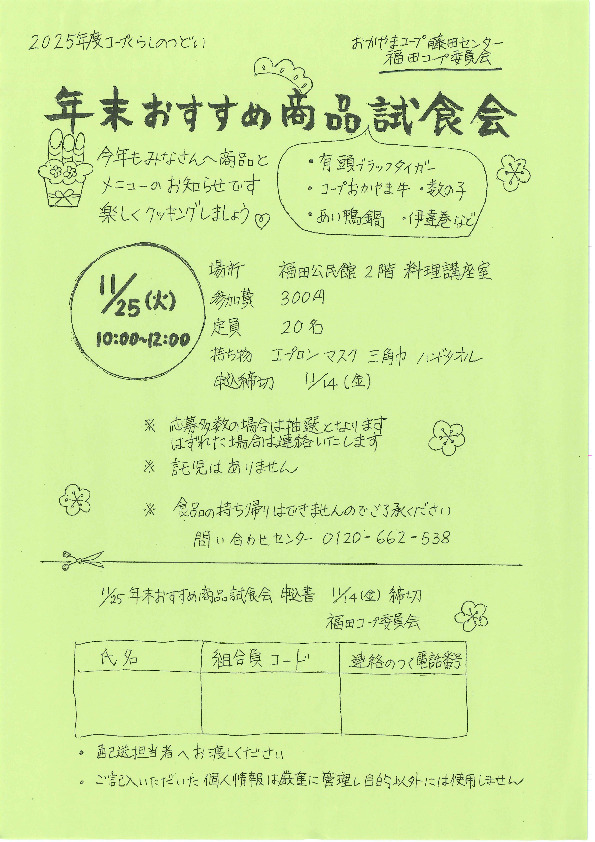 2025年度コープくらしのつどい
おかやまコープ藤田センター
福田コープ委員会
年末おすすめ商品試食会
今年もみなさんへ商品と
メニューのお知らせです
楽しくクッキングしましょう♡
・有頭ブラックタイガー
・コープおかやま牛 ・数の子
・あい鴨鍋 ・伊達巻など
11/25(火)
10:00~12:00
場所 福田公民館 2階 料理講座室
参加費 300円
定員 20名
持ち物 エプロン マスク 三角巾 ハンドタオル
申込締切 11/14(金)
※ 応募多数の場合は抽選となります
はずれた場合は連絡いたします
※ 託児はありません
※ 食品の持ち帰りはできませんのでご了承ください
問い合わせセンター 0120-662-538
11/25 年末おすすめ商品試食会 申込書 11/14(金) 締切
福田コープ委員会
氏名 組合員コード 連絡のつく電話番号
・配送担当者へお渡しください
・ご記入いただいた個人情報は厳重に管理し目的以外には使用しません